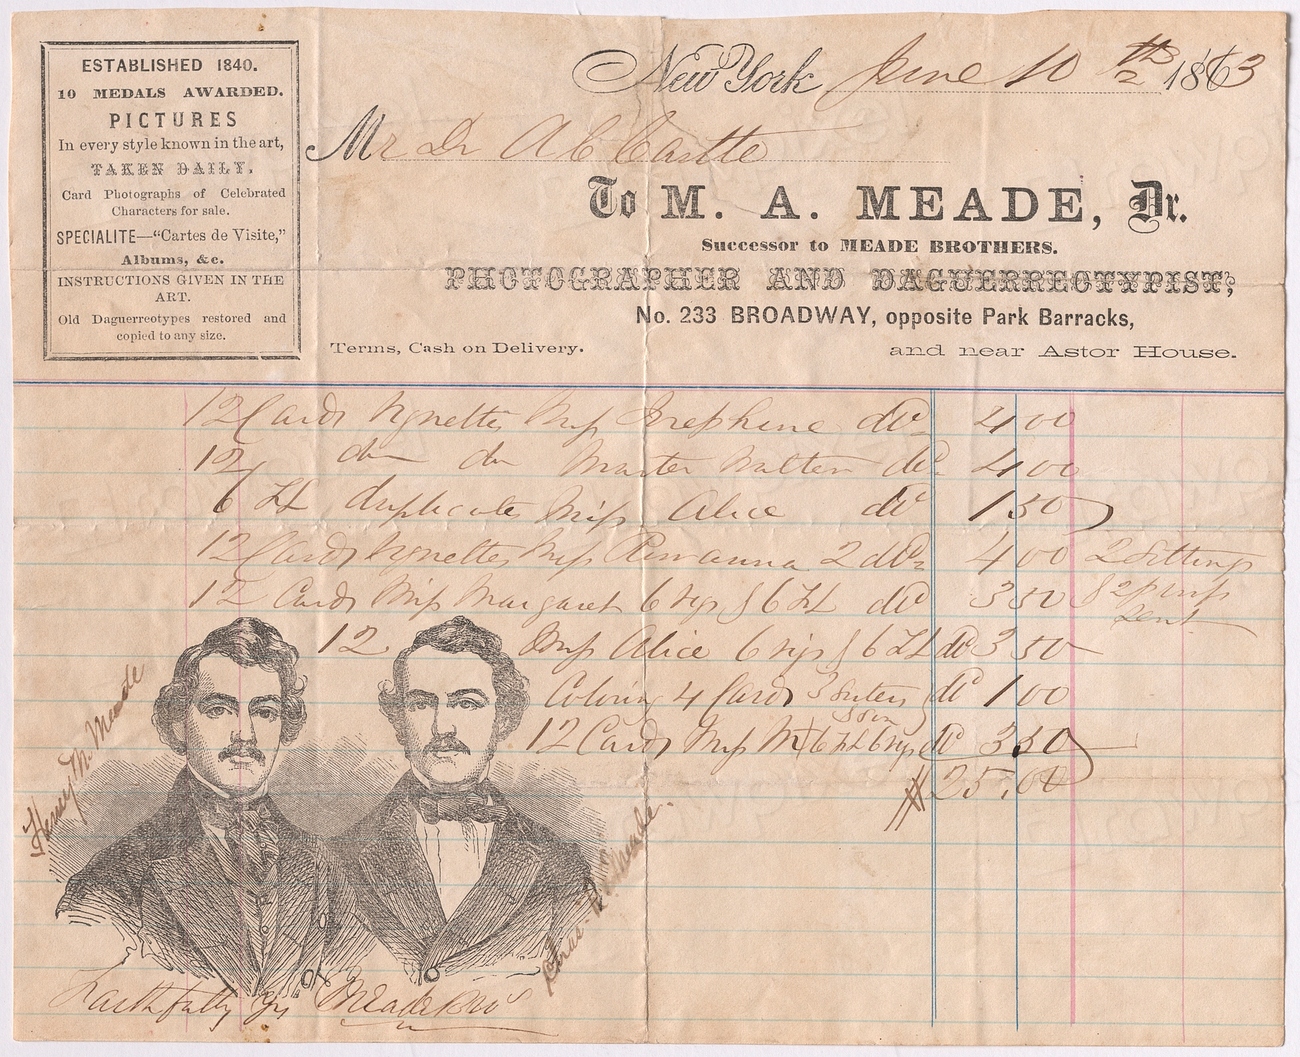 ESTABLISHED 1840.
10 MEDALS AWARDED.
PICTURES
In every style known in the art,
TAKEN DAILY.
Card Photographs of Celebrated
Characters for sale.
SPECIALITE—"Cartes de Visite,"
Albums, &c.
INSTRUCTIONS GIVEN IN THE
ART.
Old Daguerreotypes restored and
copied to any size.
New York June 10 th 1863
Mr Dr A C Castle
To M. A. MEADE, Dr.
Successor to MEADE BROTHERS.
PHOTOGRAPHER AND DAGUERREOTYPIST,
No. 233 BROADWAY, opposite Park Barracks,
Terms, Cash on Delivery.
and near Astor House.
12 Cards Vignettes Miss Josephine 4 00
12 do do Master Walter 4 00
6 duplicates Miss Alice 1 50
12 Cards Vignettes Miss 2 4 00 2 Sittings
12 Cards Miss Margaret 6 vigs & 6 3 50 sent
12 Miss Alice 6 vigs & 6 3 50
Coloring 4 Cards 1 00
12 Cards Miss M 6 6 vigs 3 50
$25.00
Henry M. Meade
Chas. R. Meade.
Faithfully Yrs Meade Bros